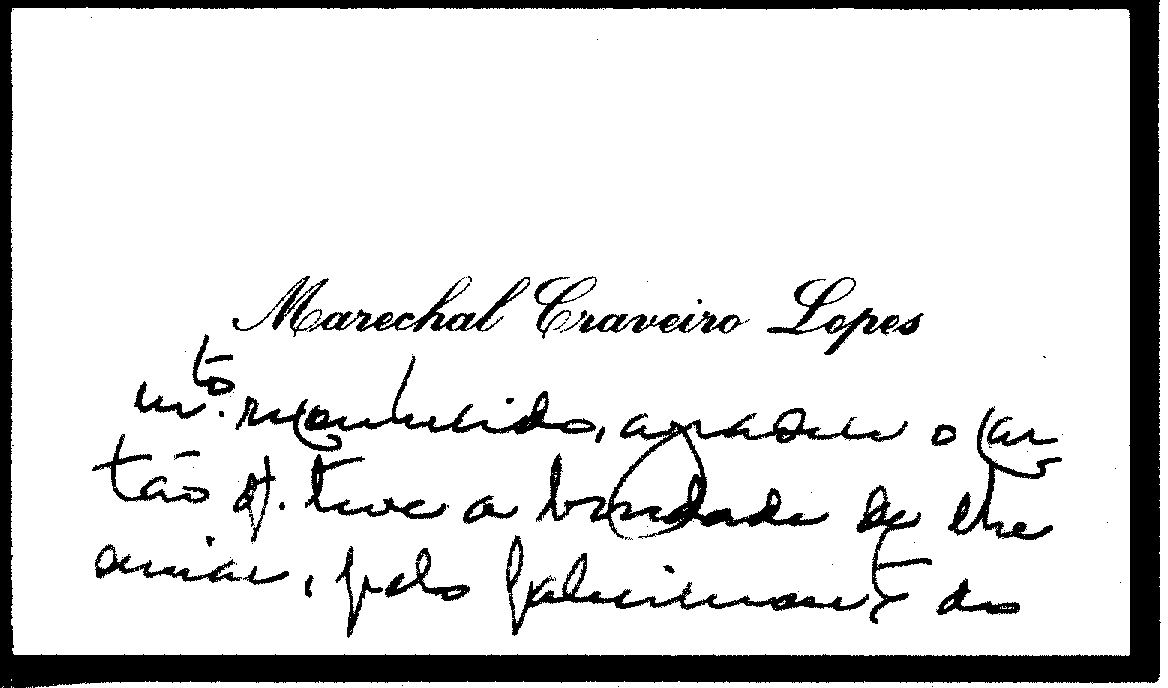 Marechal Craveiro Lopes
mto. reconhecido, agradece o car
tão q. teve a bondade de lhe
enviar, pelo falecimento do